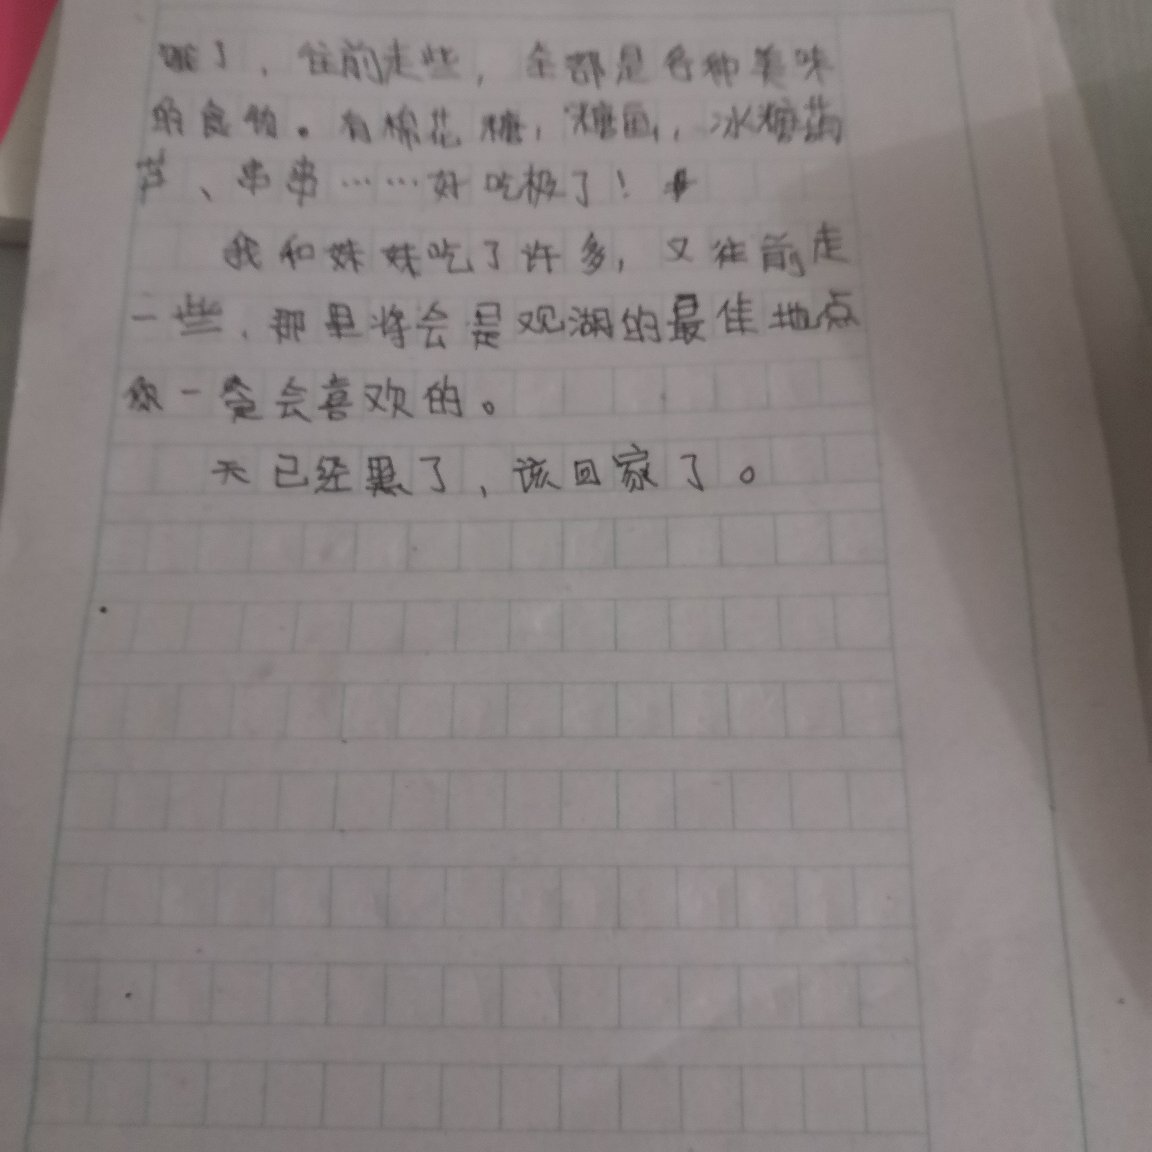 了，往前走些，全都是各种美味
的食物。有棉花糖，糖画，冰糖葫
芦、串串……好吃极了！
我和妹妹吃了许多，又往前走
一些，那里将会是观湖的最佳地点
你一定会喜欢的。
天已经黑了，该回家了。